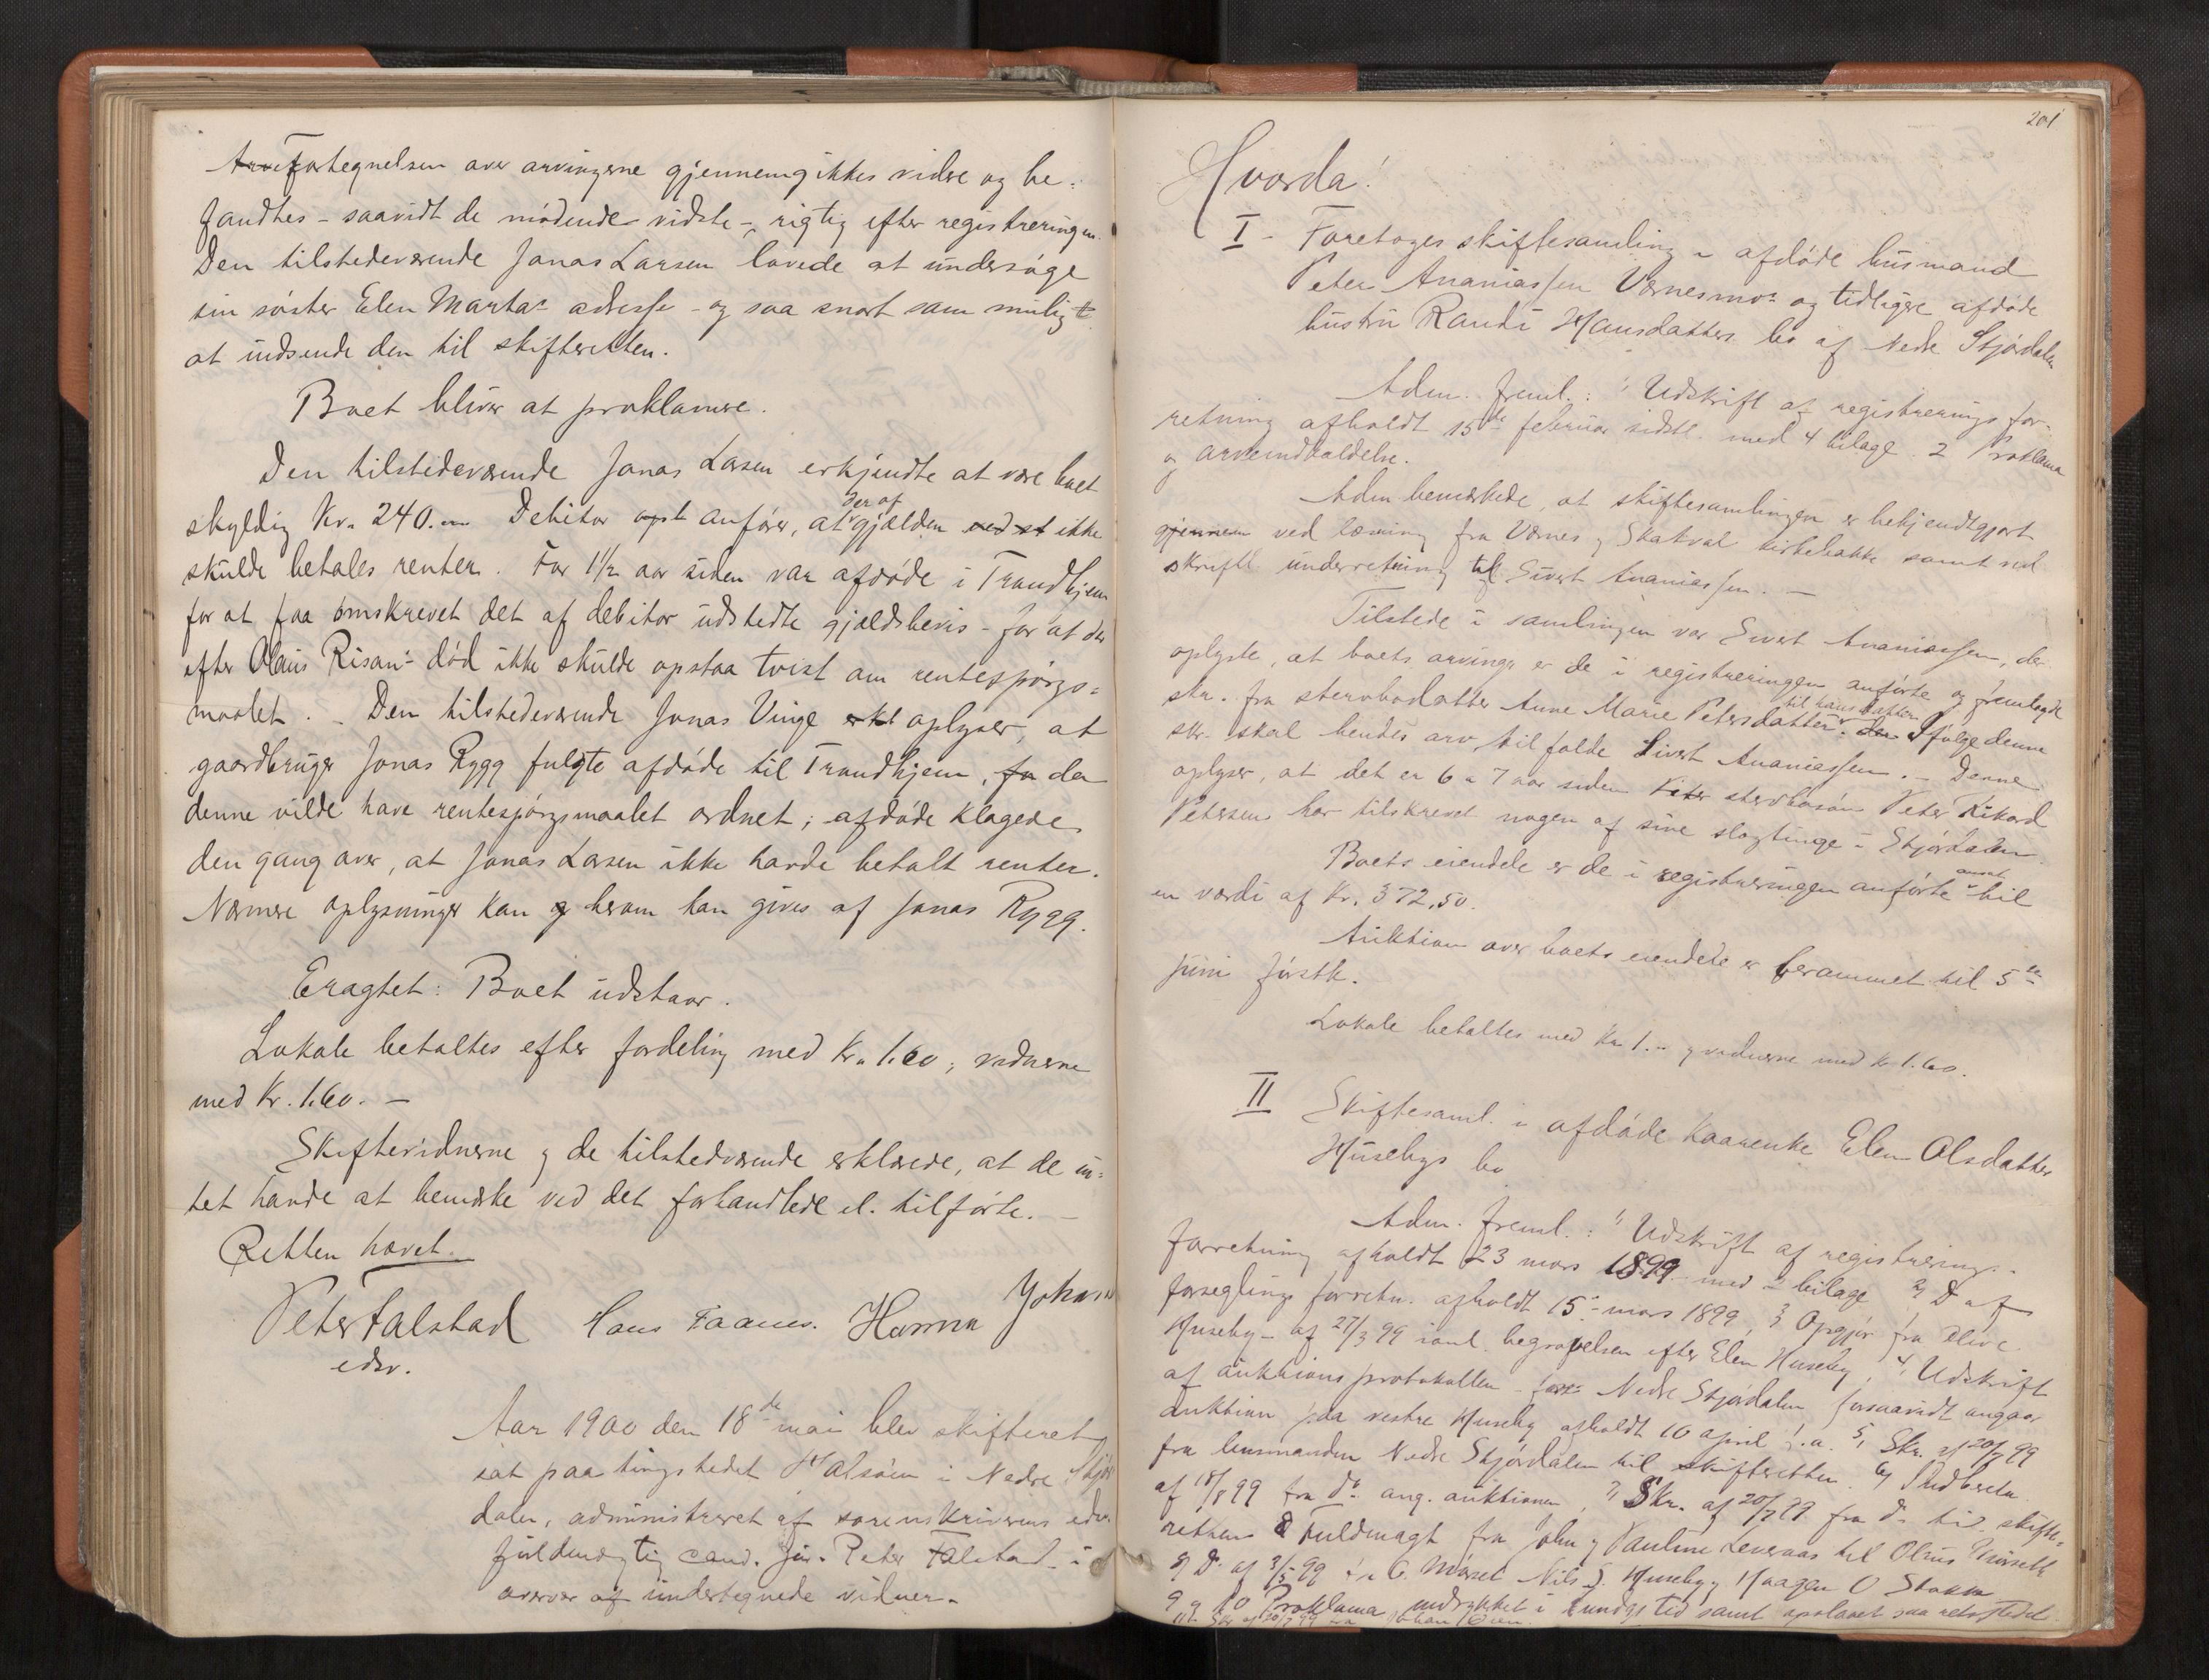 Fortegnelsen over arvingerne gjennemgikkes videre og be-
fandtes – saavidt de mødende vidste –, rigtig efter registreringen.
Den tilstedeværende Jonas Larsen lovede at undersøge
sin søster Elen Martas adresse – og saa snart som muligt
at indsende den til skifteretten.
Boet bliver at proklamere.
Den tilstedeværende Jonas Larsen erkjendte at være boet
skyldig Kr. 240.– Debitor anfører, at der af gjælden ikke
skulde betales renter. For 1½ aar siden var afdøde i Trondhjem
for at faa omskrevet det af debitor udstedte gjældsbevis – for at der
efter Olaus Risans død ikke skulde opstaa tvist om rentespørgs-
maalet. – Den tilstedeværende Jonas Vinge oplyser, at
gaardbruger Jonas Rygg fulgte afdøde til Trondhjem, da
denne vilde have rentespørgsmaalet ordnet; afdøde klagede
den gang over, at Jonas Larsen ikke havde betalt renter.
Nærmere oplysninger kan herom kan gives af Jonas Rygg.
Eragtet: Boet udstaar.
Lokale betaltes efter fordeling med Kr. 1.60; vidnerne
med Kr. 1.60. –
Skiftevidnerne og de tilstedeværende erklærede, at de in-
tet havde at bemærke ved det forhandlede el. tilførte. –
Retten hævet.
Peter Falstad Hans Faanes. Johan
edsv.
Aar 1900 den 18de mai blev skifteret
sat paa tingstedet Halsøen i Nedre Stjør
dalen, administreret af sorenskriverens edsv.
fuldmægtig cand. jur. Peter Falstad – i
overvær af undertegnede vidner. –
201
Hvorda!
I – Foretoges skiftesamling i afdøde husmand
Peter Ananiassen Værnesmo's og tidligere afdøde
hustru Randi Hansdatters bo af Nedre Stjørdalen
Adm. freml.: 1, Udskrift af registreringsfor-
retning afholdt 15de februar sidstl. med 4 bilage. 2 Proklama
og arveindkaldelse.
Adm. bemærkede, at skiftesamlingen er bekjendtgjort
gjennem ved læsning fra Værnes og Skatval kirkebakke samt ved
skriftl. underretning til Sivert Ananiassen. –
Tilstede i samlingen var Sivert Ananiassen, der
oplyste, at boets arvinger er de i registreringen anførte og fremlagde
skr. fra stervbodatter Anne Marie Petersdatter til hans datter. Ifølge denne
skr. skal hendes arv tilfalde Sivert Ananiassen. – Denne
oplyser, at det er 6 a 7 aar siden stervbosøn Peter Rikard
Petersen har tilskrevet nogen af sine slegtinge i Stjørdalen.
Boets eiendele er de i registreringen anførte ansat til
en værdi af Kr. 372,50.
Auktion over boets eiendele er berammet til 5te
juni førstk.
Lokale betaltes med Kr 1.– og vidnerne med kr 1.60.
II Skiftesaml. i afdøde kaarenke Elen Olsdatter
Husebys bo
Adm. freml.: 1, Udskrift af registrerings-
forretning afholdt 23 mars 1899 med 2 bilage 2, Do af
forseglingsforretn. afholdt 15de mars 1899, 3 Opgjør fra Olive
Huseby – af 27/3 99 saml. begravelsen efter Elen Huseby, 4, Udskrift
af auktionsprotokollen for Nedre Stjørdalen forsaavidt angaar
auktion paa vestre Huseby afholdt 10 april f.a. 5, Skr. af 20/7 99
fra lensmanden Nedre Stjørdalen til skifteretten. 6,
af 18/8 99 fra do ang. auktionen, 7, Skr. af 20/7 99 fra do til skifte-
retten 8 Fuldmagt fra John og Pauline Leveraas til Olaus
9, Do af 3/5 99 Nils J. Huseby, Haagen O
9 og 10 Proklama indrykket i kundgj. tid. samt opslaaet paa retsstedet.
11 Skr af 20/7 99 fra Johan